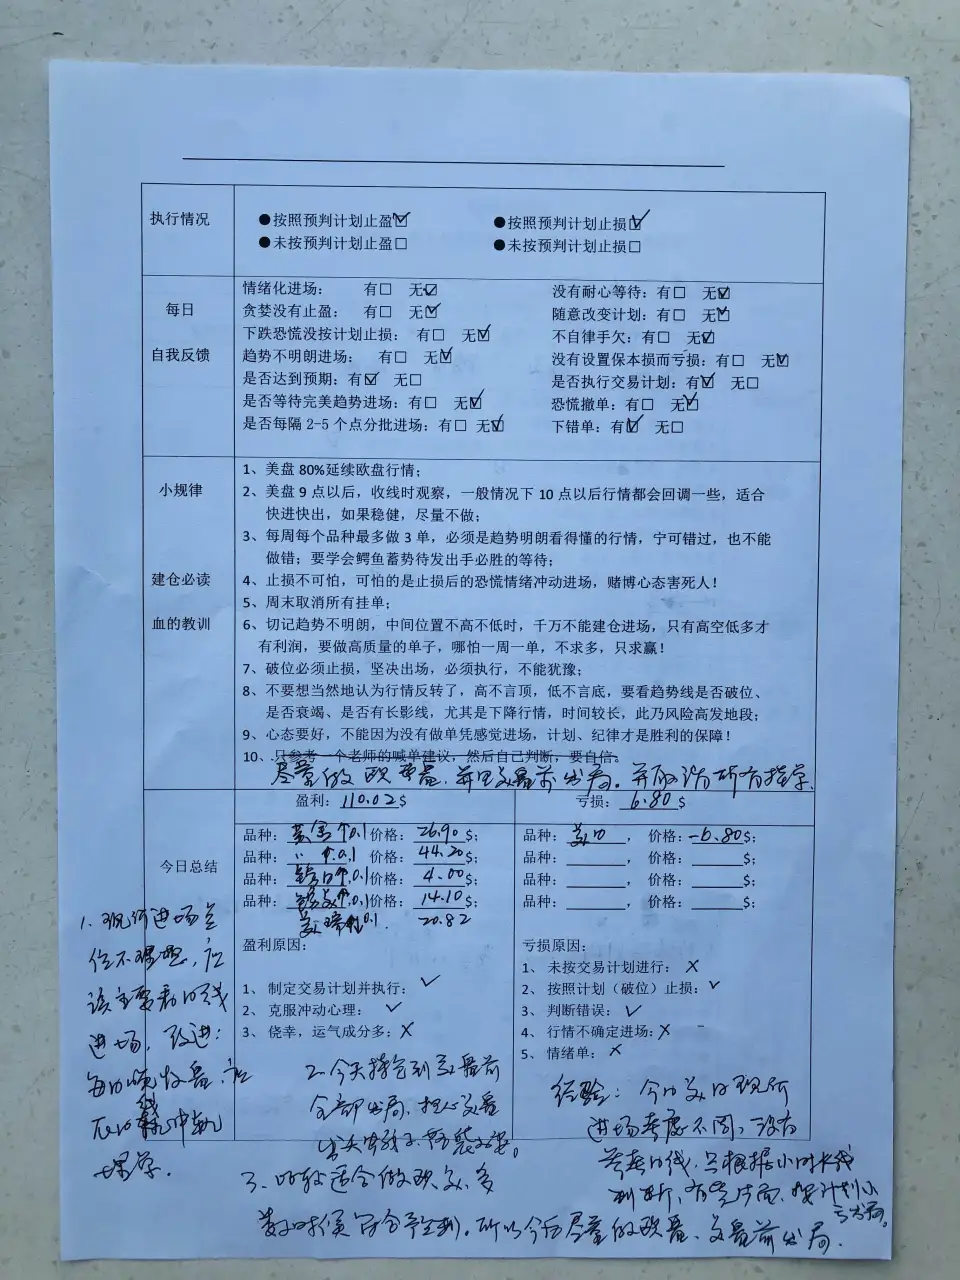 执行情况
●按照预判计划止盈☑ ●按照预判计划止损☑
●未按预判计划止盈□ ●未按预判计划止损□
每日
自我反馈
情绪化进场： 有□ 无☑ 没有耐心等待：有□ 无☑
贪婪没有止盈： 有□ 无☑ 随意改变计划： 有□ 无☑
下跌恐慌没按计划止损： 有□ 无☑ 不自律手欠：有□ 无☑
趋势不明朗进场： 有□ 无☑ 没有设置保本损而亏损：有□ 无☑
是否达到预期：有☑ 无□ 是否执行交易计划：有☑ 无□
是否等待完美趋势进场：有□ 无☑ 恐慌撤单：有□ 无☑
是否每隔 2-5 个点分批进场：有□ 无☑ 下错单：有☑ 无□
小规律
建仓必读
血的教训
1、美盘 80%延续欧盘行情；
2、美盘 9 点以后，收线时观察，一般情况下 10 点以后行情都会回调一些，适合
快进快出，如果稳健，尽量不做；
3、每周每个品种最多做 3 单，必须是趋势明朗看得懂的行情，宁可错过，也不能
做错；要学会鳄鱼蓄势待发出手必胜的等待；
4、止损不可怕，可怕的是止损后的恐慌情绪冲动进场，赌博心态害死人！
5、周末取消所有挂单；
6、切记趋势不明朗，中间位置不高不低时，千万不能建仓进场，只有高空低多才
有利润，要做高质量的单子，哪怕一周一单，不求多，只求赢！
7、破位必须止损，坚决出场，必须执行，不能犹豫；
8、不要想当然地认为行情反转了，高不言顶，低不言底，要看趋势线是否破位、
是否衰竭、是否有长影线，尤其是下降行情，时间较长，此乃风险高发地段；
9、心态要好，不能因为没有做单凭感觉进场，计划、纪律才是胜利的保障！
10、只参考一个老师的喊单建议，然后自己判断，要自信。
尽量做欧盘，并且美盘前出局。
今日总结
盈利：110.02$ 亏损：6.80$
品种：黄金↑0.1价格：26.90$； 品种：美日，价格：-6.80$；
品种：〃 ↑0.1 价格：44.20$； 品种： ，价格： $；
品种：日↑0.1价格：4.00$； 品种： ，价格： $；
品种：美↑0.1价格：14.10$； 品种： ，价格： $；
美瑞0.1 20.82
盈利原因：
1、制定交易计划并执行：✓
2、克服冲动心理：✓
3、侥幸，运气成分多：✗
亏损原因：
1、未按交易计划进行：✗
2、按照计划（破位）止损：✓
3、判断错误：✓
4、行情不确定进场：✗
5、情绪单：✗
1.现价进场点
位不理想，应
该主要看日线
进场，改进：
2.今天持仓到美盘前
全部出局，担心美盘
3、比较适合做欧美，多
所以今后尽量做欧盘、美盘前出局.
经验：今日美日现价
进场考虑不周，没有
参考日线，只根据小时K线
判断，有些片面，按计划小
亏出局。